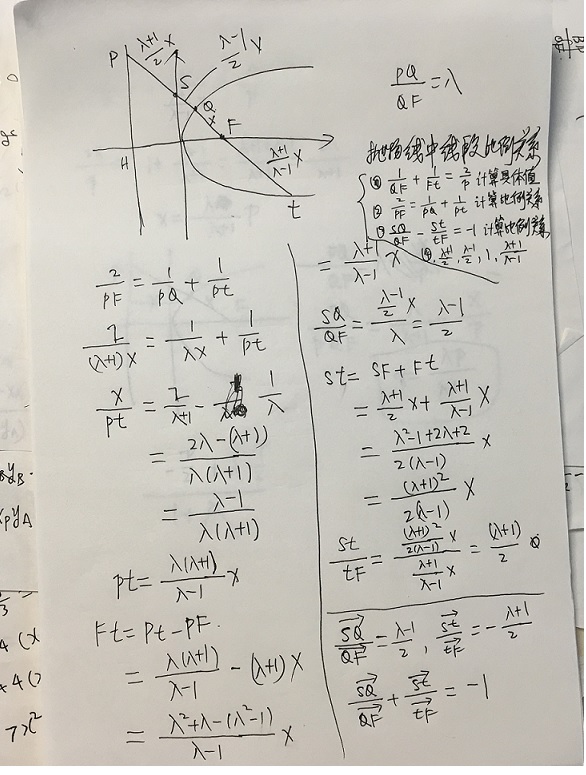 P
λ+1/2 x
λ-1/2 x
S
Q
x
F
H
λ+1/λ-1 x
t
PQ/QF = λ
抛物线中线段比例关系
① 1/QF + 1/Ft = 2/P 计算具体值
② 2/PF = 1/PQ + 1/Pt 计算比例关系
③ SQ/QF - St/tF = -1 计算比例关系
④ λ+1/2, λ-1/2, 1, λ+1/λ-1
2/PF = 1/PQ + 1/Pt
2/(λ+1)x = 1/λx + 1/Pt
x/Pt = 2/λ+1 - 1/λ
= 2λ-(λ+1)/λ(λ+1)
= λ-1/λ(λ+1)
Pt = λ(λ+1)/λ-1 x
Ft = Pt - PF.
= λ(λ+1)/λ-1 - (λ+1) x
= λ²+λ-(λ²-1)/λ-1 x
= λ+1/λ-1 x
SQ/QF = λ-1/2 x/λ = λ-1/2
St = SF + Ft
= λ+1/2 x + λ+1/λ-1 x
= λ²-1+2λ+2/2(λ-1) x
= (λ+1)²/2(λ-1) x
St/tF = (λ+1)²/2(λ-1) x/λ+1/λ-1 x = (λ+1)/2
SQ/QF = λ-1/2, St/tF = -λ+1/2
SQ/QF + St/tF = -1